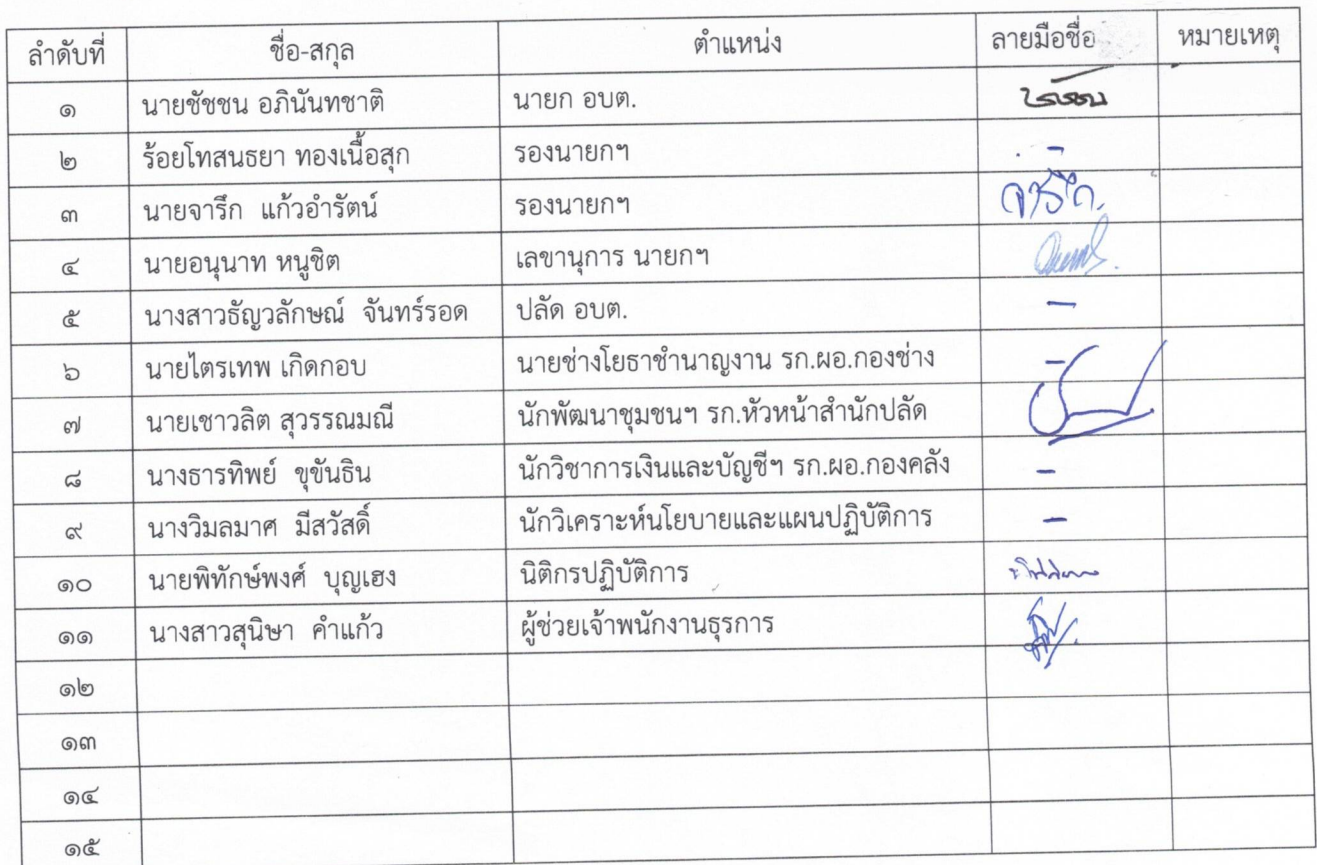 ลำดับที่ ชื่อ-สกุล ตำแหน่ง ลายมือชื่อ หมายเหตุ
๑ นายชัชชน อภินันทชาติ นายก อบต.
๒ ร้อยโทสนธยา ทองเนื้อสุก รองนายกฯ -
๓ นายจารึก แก้วอำรัตน์ รองนายกฯ จารึก.
๔ นายอนุนาท หนูชิต เลขานุการ นายกฯ
๕ นางสาวธัญวลักษณ์ จันทร์รอด ปลัด อบต. -
๖ นายไตรเทพ เกิดกอบ นายช่างโยธาชำนาญงาน รก.ผอ.กองช่าง -
๗ นายเชาวลิต สุวรรณมณี นักพัฒนาชุมชนฯ รก.หัวหน้าสำนักปลัด
๘ นางธารทิพย์ ขุขันธิน นักวิชาการเงินและบัญชีฯ รก.ผอ.กองคลัง -
๙ นางวิมลมาศ มีสวัสดิ์ นักวิเคราะห์นโยบายและแผนปฏิบัติการ -
๑๐ นายพิทักษ์พงศ์ บุญเฮง นิติกรปฏิบัติการ
๑๑ นางสาวสุนิษา คำแก้ว ผู้ช่วยเจ้าพนักงานธุรการ
๑๒
๑๓
๑๔
๑๕